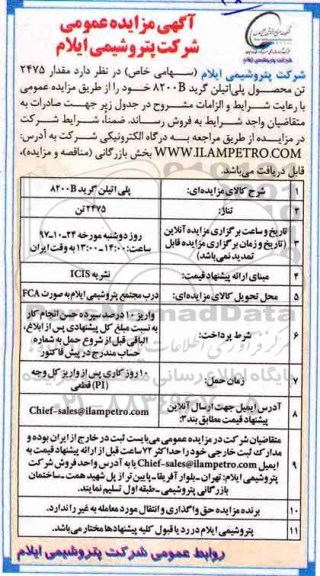 آگهی مزایده عمومی
شرکت پتروشیمی ایلام
شرکت پتروشیمی ایلام (سهامی خاص) در نظر دارد مقدار ۲۴۷۵
تن محصول پلی‌اتیلن گرید ۸۲۰۰B خود را از طریق مزایده عمومی
با رعایت شرایط و الزامات مشروح در جدول زیر جهت صادرات به
متقاضیان واجد شرایط به فروش رساند. ضمناً، شرایط شرکت
در مزایده از طریق مراجعه به درگاه الکترونیکی شرکت به آدرس:
WWW.ILAMPETRO.COM بخش بازرگانی (مناقصه و مزایده)،
قابل دریافت می‌باشد.
۱ شرح کالای مزایده‌ای: پلی اتیلن گرید ۸۲۰۰B
۲ تناژ: ۲۴۷۵ تن
۳ تاریخ و ساعت برگزاری مزایده آنلاین (تاریخ و زمان برگزاری مزایده قابل تمدید نمی‌باشد) روز دوشنبه مورخه ۲۴-۱۰-۹۷ ساعت: ۱۴:۰۰-۱۳:۰۰ به وقت ایران
۴ مبنای ارائه پیشنهاد قیمت: نشریه ICIS
۵ محل تحویل کالای مزایده‌ای: درب مجتمع پتروشیمی ایلام به صورت FCA
۶ شرط پرداخت: واریز ۱۰ درصد سپرده حسن انجام کار
به نسبت مبلغ کل پیشنهادی پس از ابلاغ،
الباقی قبل از شروع حمل به شماره
حساب مندرج در پیش فاکتور
۷ زمان حمل: ۱۰ روز کاری پس از واریز کل وجه
(PI) قطعی
۸ آدرس ایمیل جهت ارسال آنلاین پیشنهاد قیمت مطابق بند ۳: Chief-sales@ilampetro.com
۹ متقاضیان شرکت در مزایده عمومی می‌بایست ثبت در خارج از ایران بوده و
مدارک ثبت خارجی خود را حداکثر ۷۲ ساعت قبل از ارائه پیشنهاد قیمت به
ایمیل Chief-sales@ilampetro.com یا به آدرس واحد فروش شرکت
پتروشیمی ایلام: تهران-بلوار آفریقا-پایین‌تر از پل شهید همت-ساختمان
بازرگانی پتروشیمی-طبقه اول تسلیم نمایند.
۱۰ برنده مزایده حق واگذاری و انتقال مورد معامله به غیر را ندارد.
۱۱ پتروشیمی ایلام در رد یا قبول کلیه پیشنهادها مختار می‌باشد.
روابط عمومی شرکت پتروشیمی ایلام